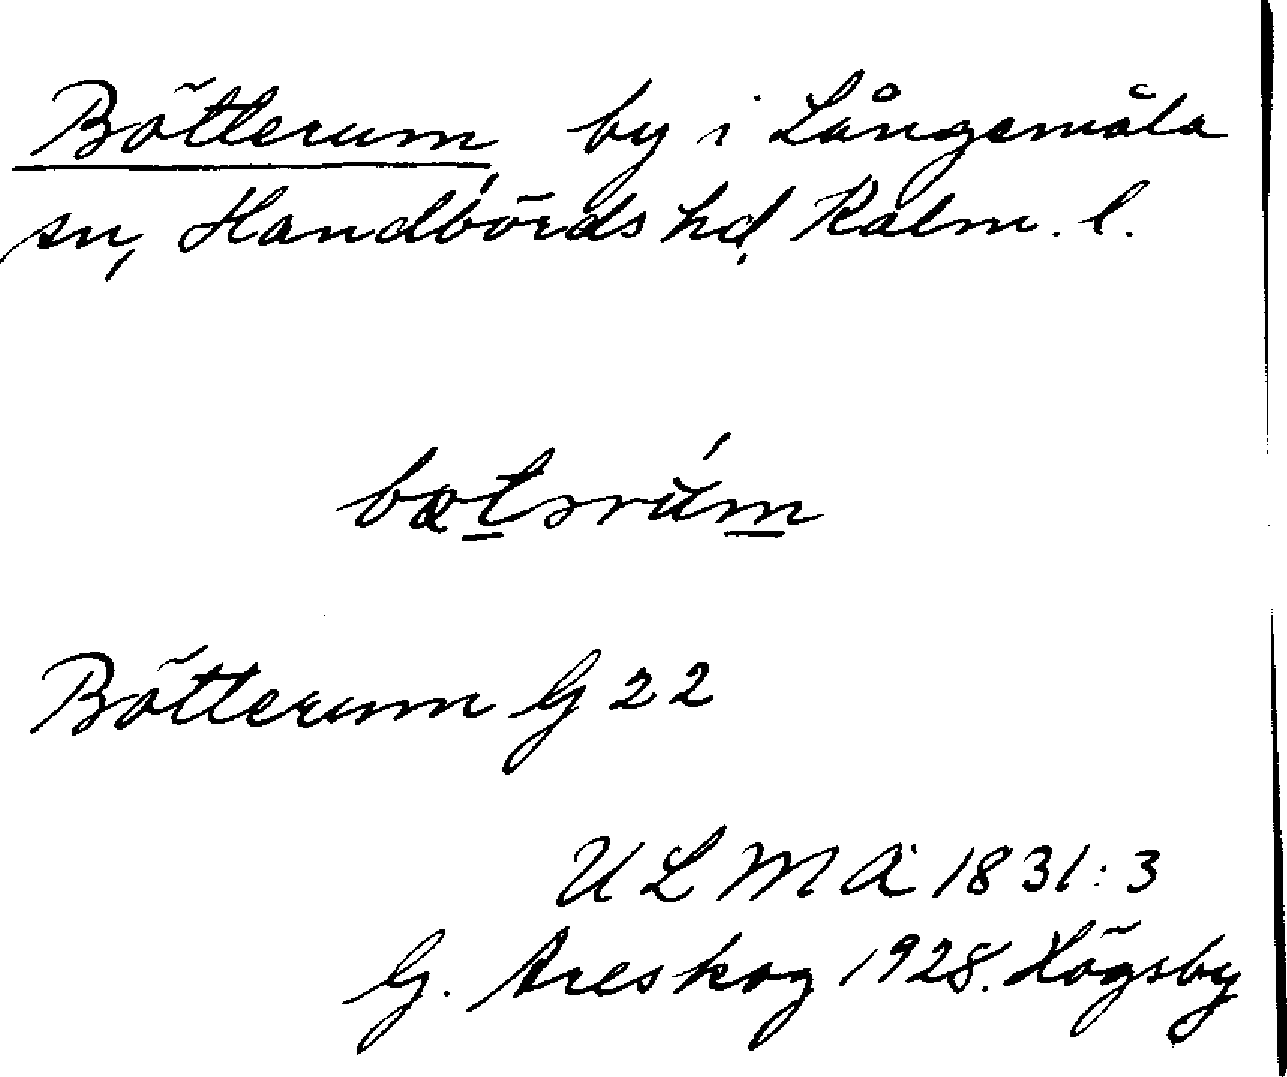 Bötterum, by i Långemåla
sn, Handbörds hd, Kalm. l.
bœtərúm
Bötterum G 22
ULMA 1831:3
G. Areskog 1928. Högsby